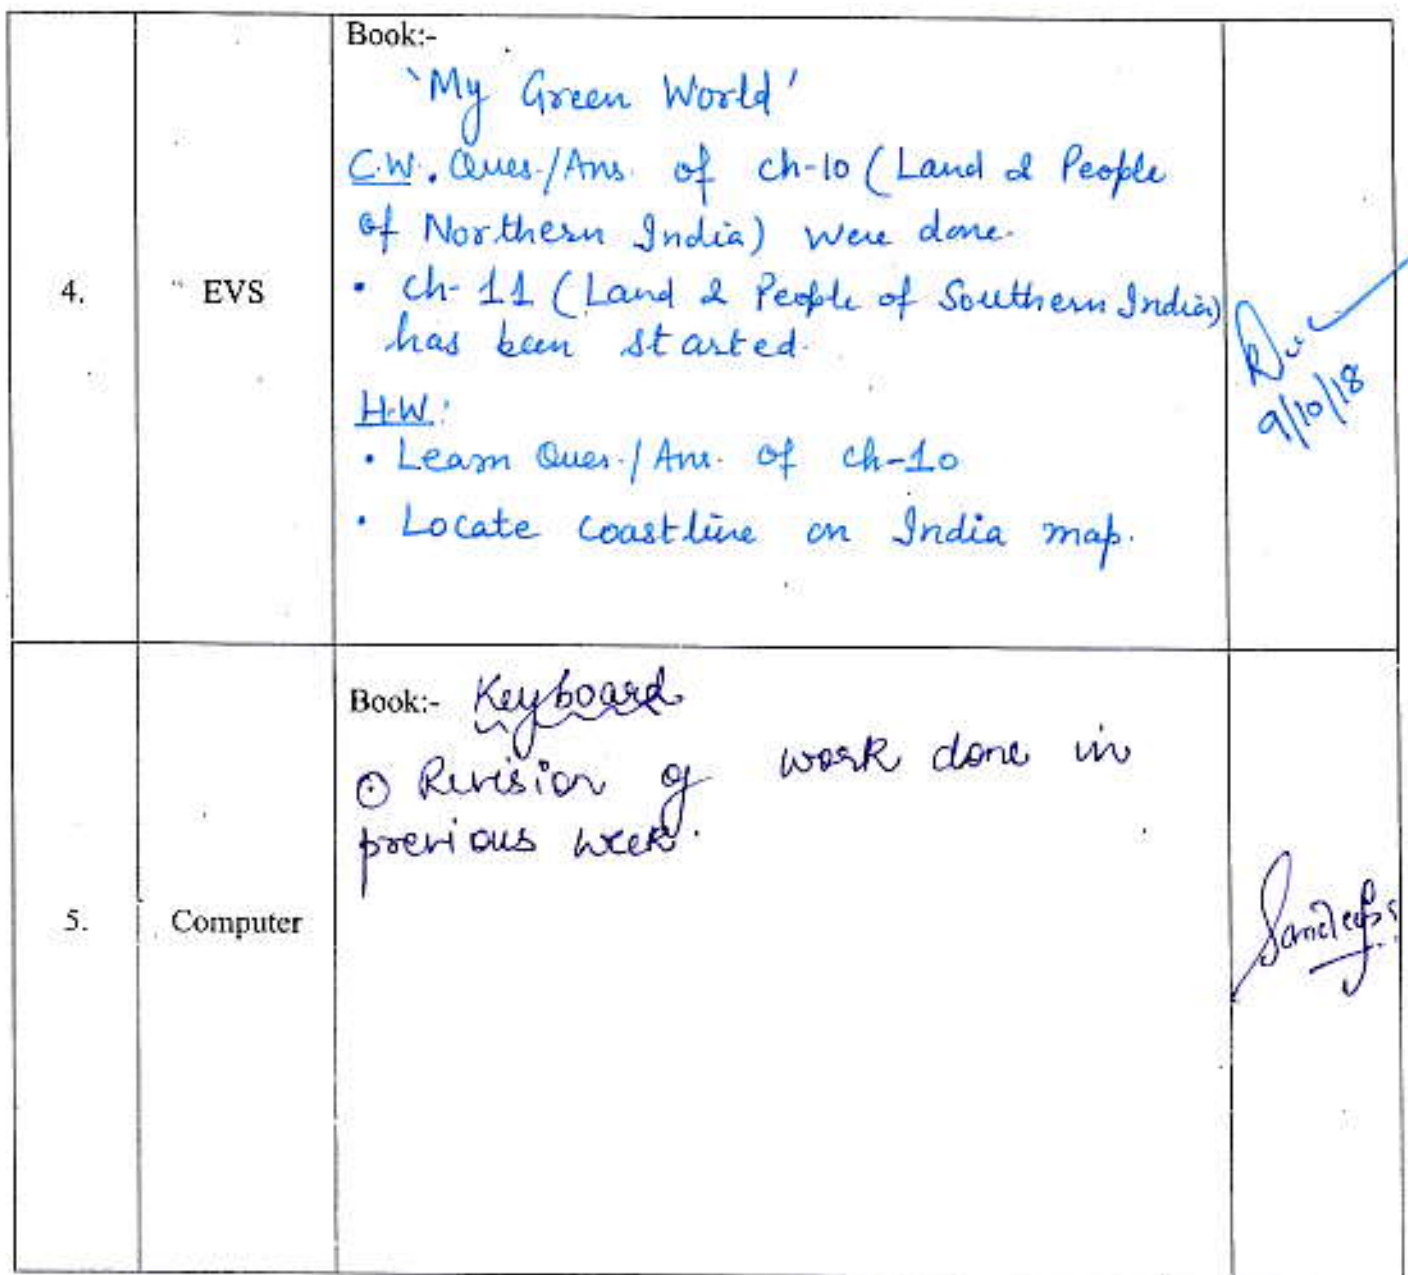 Book:-
'My Green World'
C.W. Ques./Ans. of ch-10 (Land & People
of Northern India) were done.
4. EVS
• ch-11 (Land & People of Southern India)
has been started.
9/10/18
H.W.:
• Learn Ques./Ans. of ch-10
• Locate coastline on India map.
Book:- Keyboard
⊙ Revision of work done in
previous week.
5. Computer
Sandeep